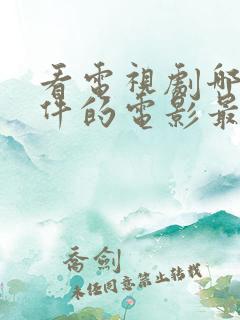 看電視劇哪
件的電影最
喬劍
未經同意禁止轉載